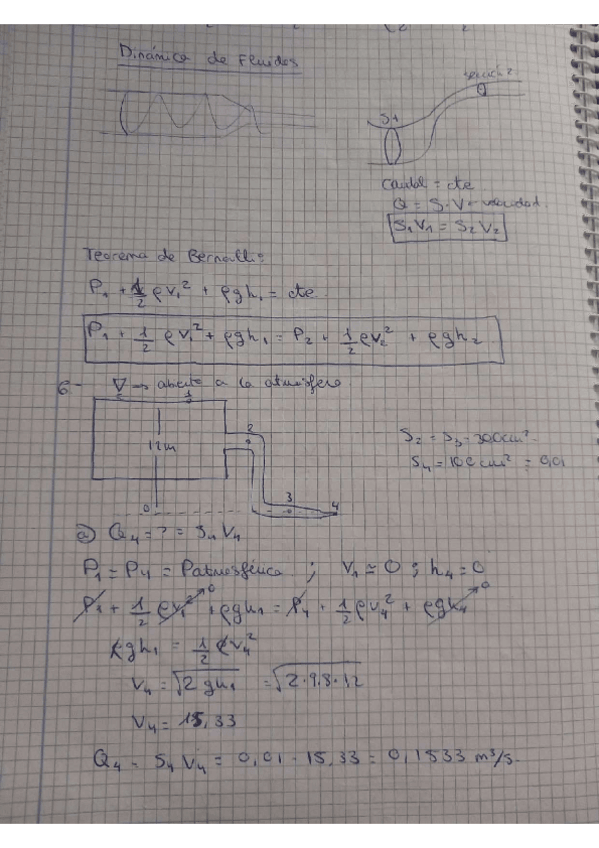 Dinámica de Fluidos
sección 2.
S1
Caudal = cte
Q = S.V → velocidad.
S₁V₁ = S₂V₂
Teorema de Bernulli:
P₁ + 1/2 ρv₁² + ρgh₁ = cte
P₁ + 1/2 ρv₁² + ρgh₁ = P₂ + 1/2 ρv₂² + ρgh₂
6- ∇ → abierto a la atmósfera
1
12m
2
S₂ = S₃ = 300cm².
S₄ = 100cm² = 0,01
0
3
4
a) Q₄ = ? = S₄V₄
P₁ = P₄ = Patmosférica ; V₁ ≃ 0 ; h₄ = 0
P₁ + 1/2 ρv₁² + ρgh₁ = P₄ + 1/2 ρv₄² + ρgh₄
ρgh₁ = 1/2 ρv₄²
V₄ = √2gh₁ = √2·9,8·12
V₄ = 15,33
Q₄ = S₄V₄ = 0,01 · 15,33 = 0,1533 m³/s.